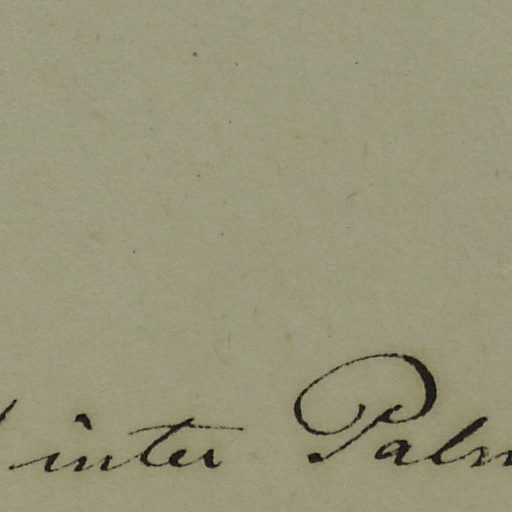 inter Palm